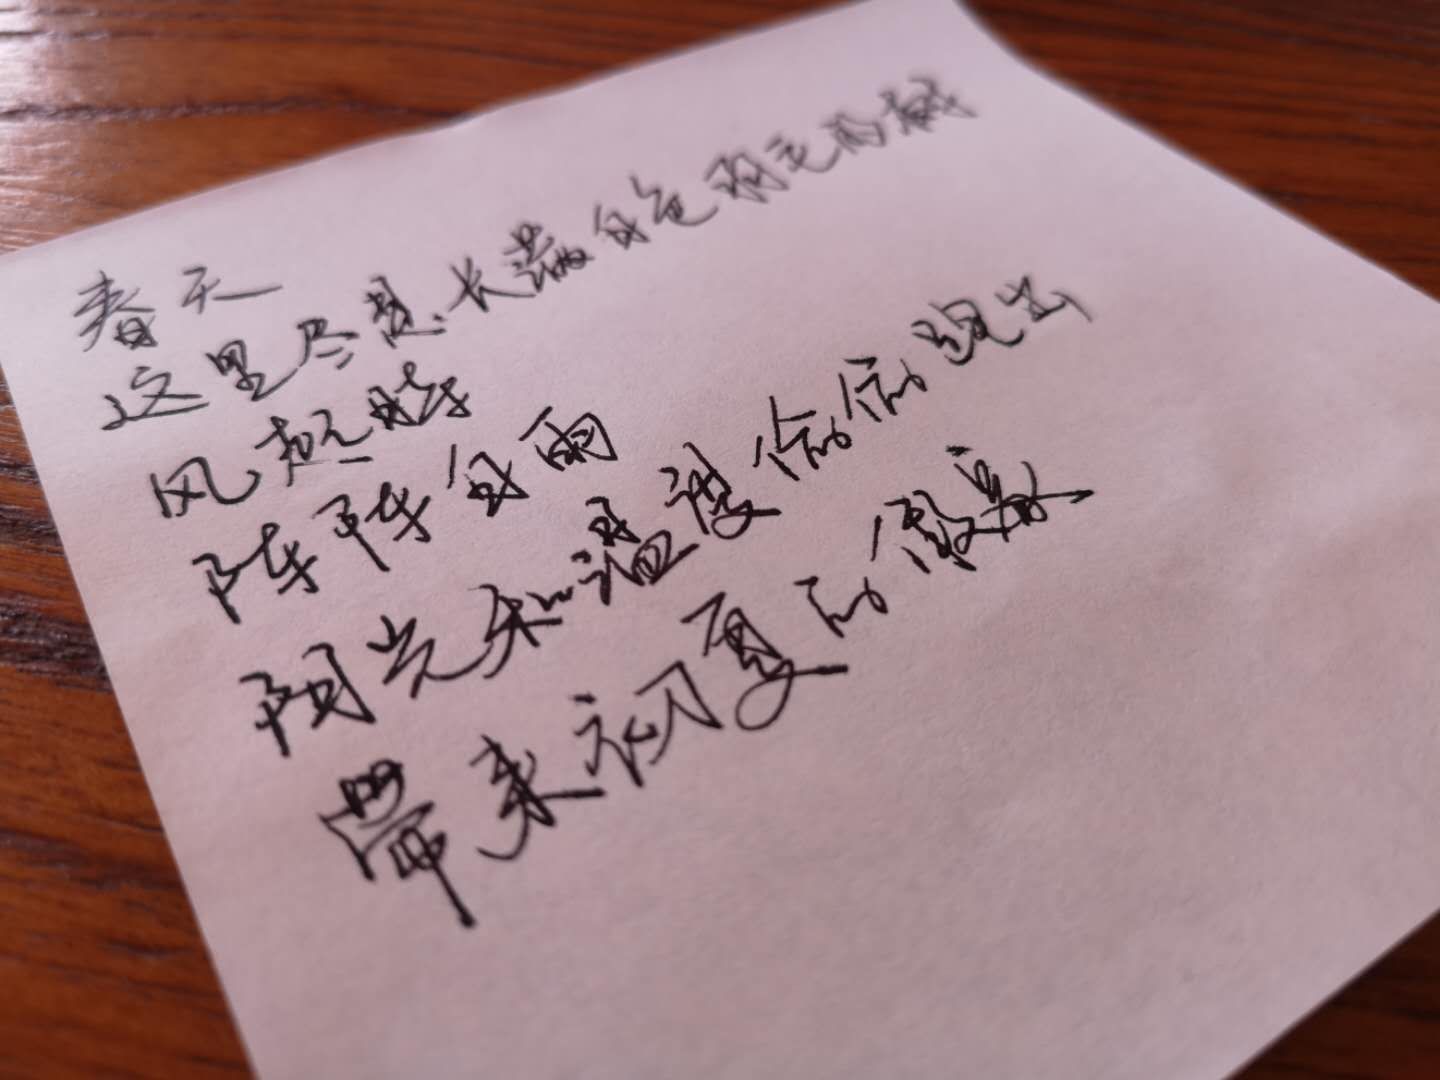 春天
这里尽是长满白色羽毛的树
风起时
阵阵白雨
阳光和温度偷偷跑出
带来初夏的傲寒